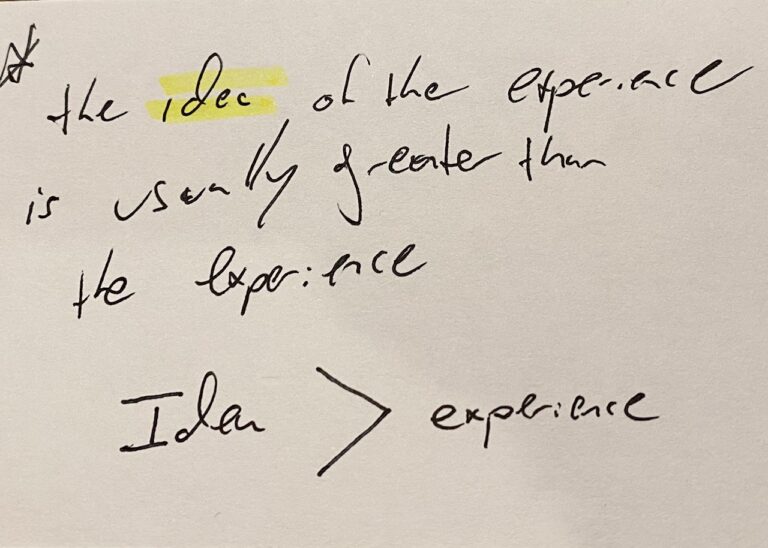 the idea of the experience
is usually greater than
the experience
Idea > experience